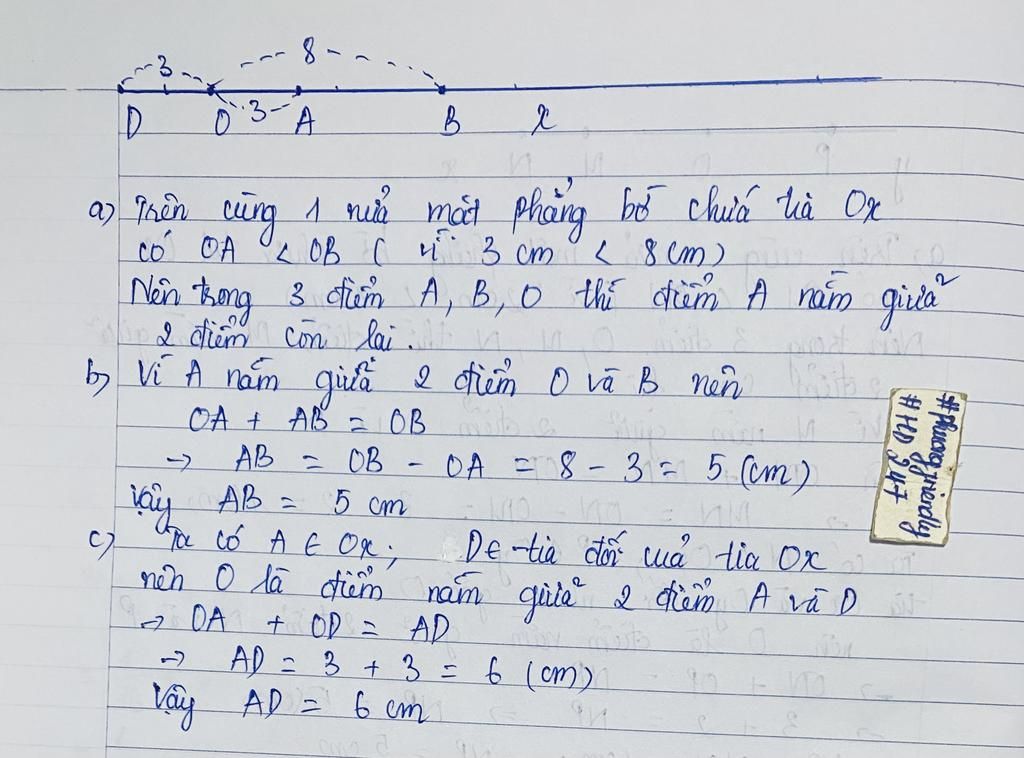 3 8
3
D O A B x
a) Trên cùng 1 nửa mặt phẳng bờ chứa tia Ox
có OA < OB ( vì 3 cm < 8 cm)
Nên trong 3 điểm A, B, O thì điểm A nằm giữa
2 điểm còn lại.
b) Vì A nằm giữa 2 điểm O và B nên
OA + AB = OB
→ AB = OB - OA = 8 - 3 = 5 (cm)
Vậy AB = 5 cm
c) Ta có A ∈ Ox; D ∈ tia đối của tia Ox
nên O là điểm nằm giữa 2 điểm A và D
→ OA + OD = AD
→ AD = 3 + 3 = 6 (cm)
Vậy AD = 6 cm
#phuongfriendly
#HD 247